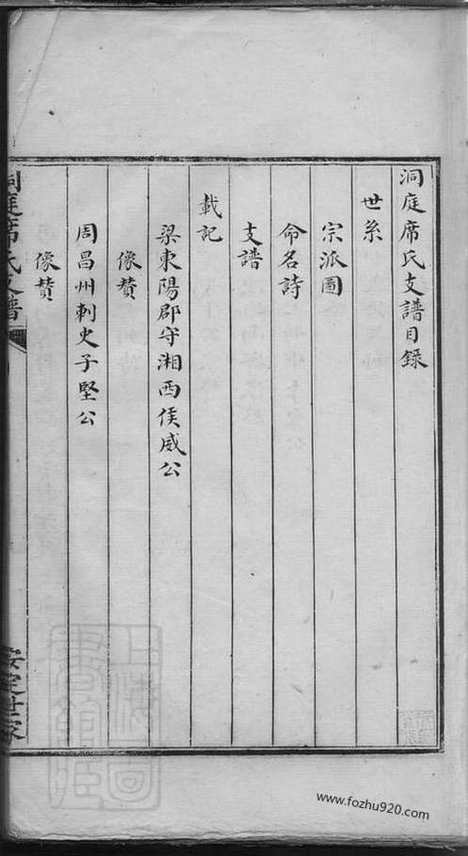 洞庭席氏支譜目録
世系
宗派圖
命名詩
支譜
載記
梁東陽郡守湘西侯威公
像贊
周昌州刺史子堅公
像贊
洞庭席氏支譜
安定世家
www.fozhu920.com